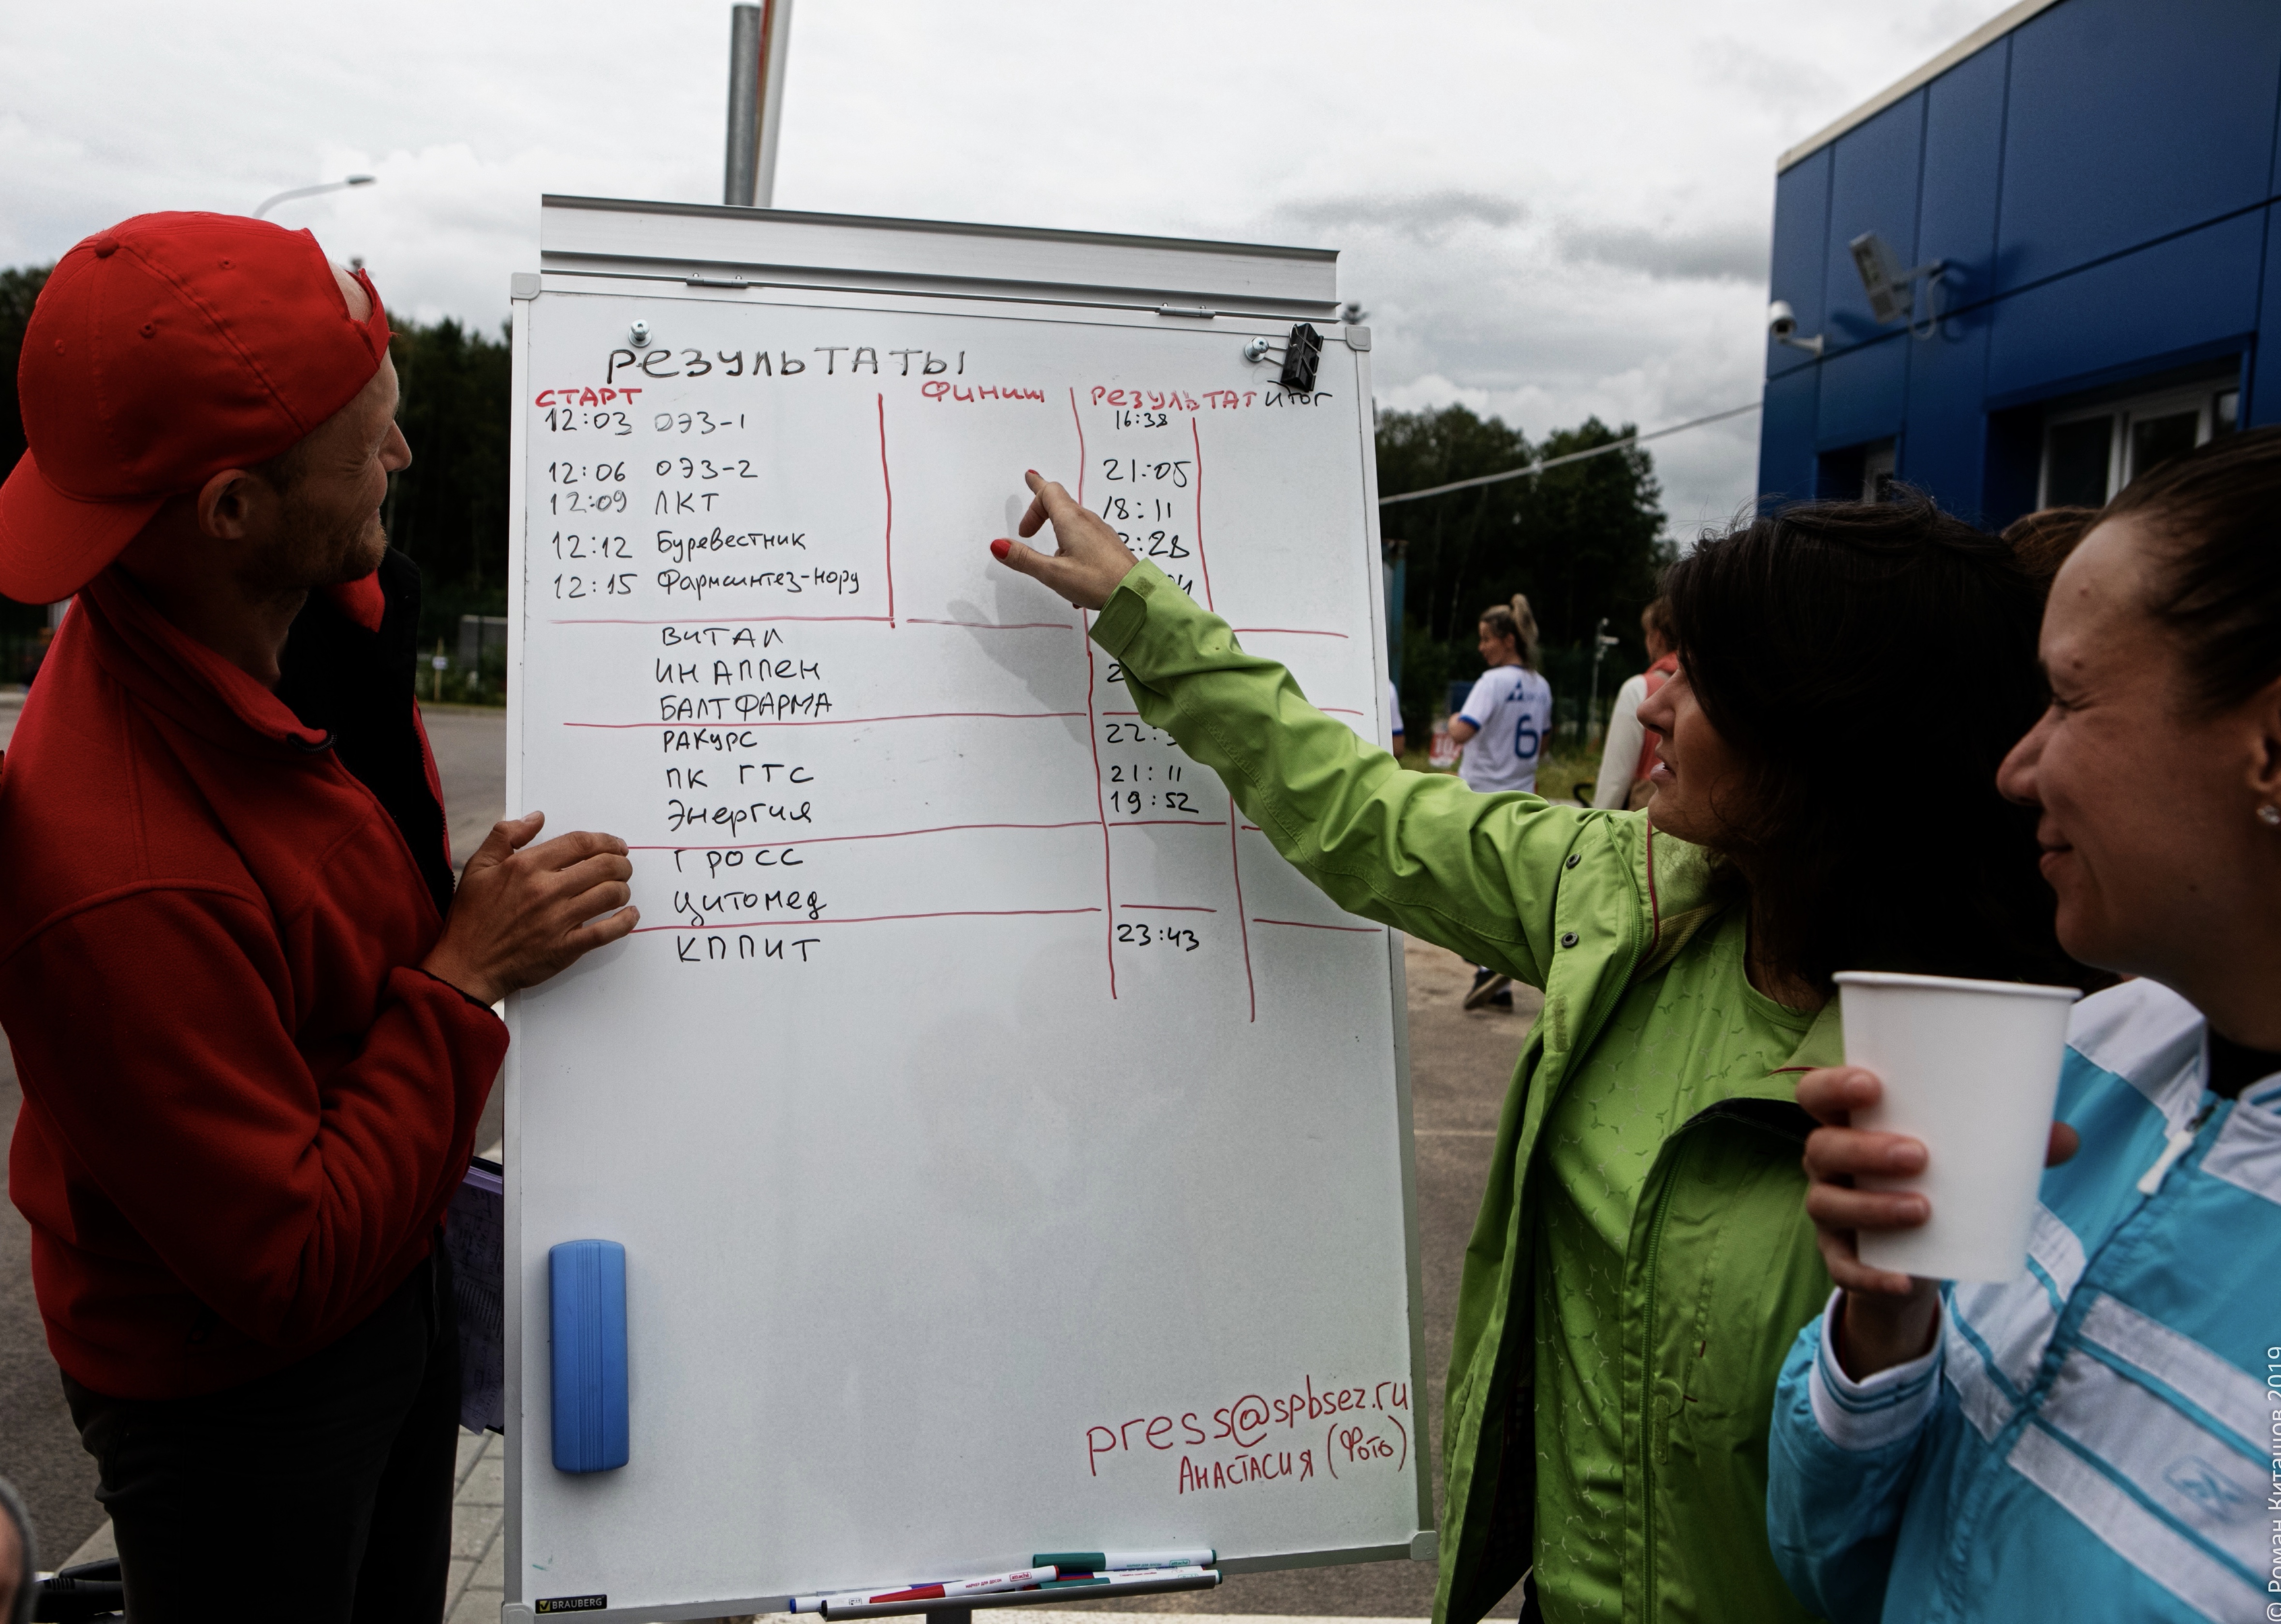 РЕЗУЛЬТАТЫ
СТАРТ ФИНИШ РЕЗУЛЬТАТ ИТОГ
12:03 ОЭЗ-1 16:38
12:06 ОЭЗ-2 21:05
12:09 ЛКТ 18:11
12:12 Буревестник :28
12:15 Фармсинтез-Норд
ВИТАЛ
ИНАППЕН
БАЛТФАРМА
РАКУРС 22:
ПК ГТС 21:11
Энергия 19:52
ГРОСС
Цитомед
КППИТ 23:43
press@spbsez.ru
АНАСТАСИЯ (Фото)
BRAUBERG
6
© Роман Киташов 2019